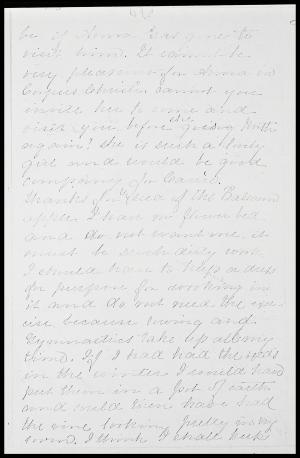 be if Anna has gone to
visit him. It cannot be
very pleasant for Anna in
Corpus Christi. Cannot you
invite her to come and
visit you before she going North
again? She is such a lovely
girl and would be good
company for
Thanks for seed of the Balsam
apple. I have no flower bed
and do not want one, it
must be such dirty work.
I should have to keep a dress
on purpose for working in
it and do not need the exer-
cise because rowing and
Gymnastics take up all my
time. If I had had the seeds
in the winter I would have
put them in a pot of earth
and could even have had
the vine looking pretty in my
room. I think I shall keep